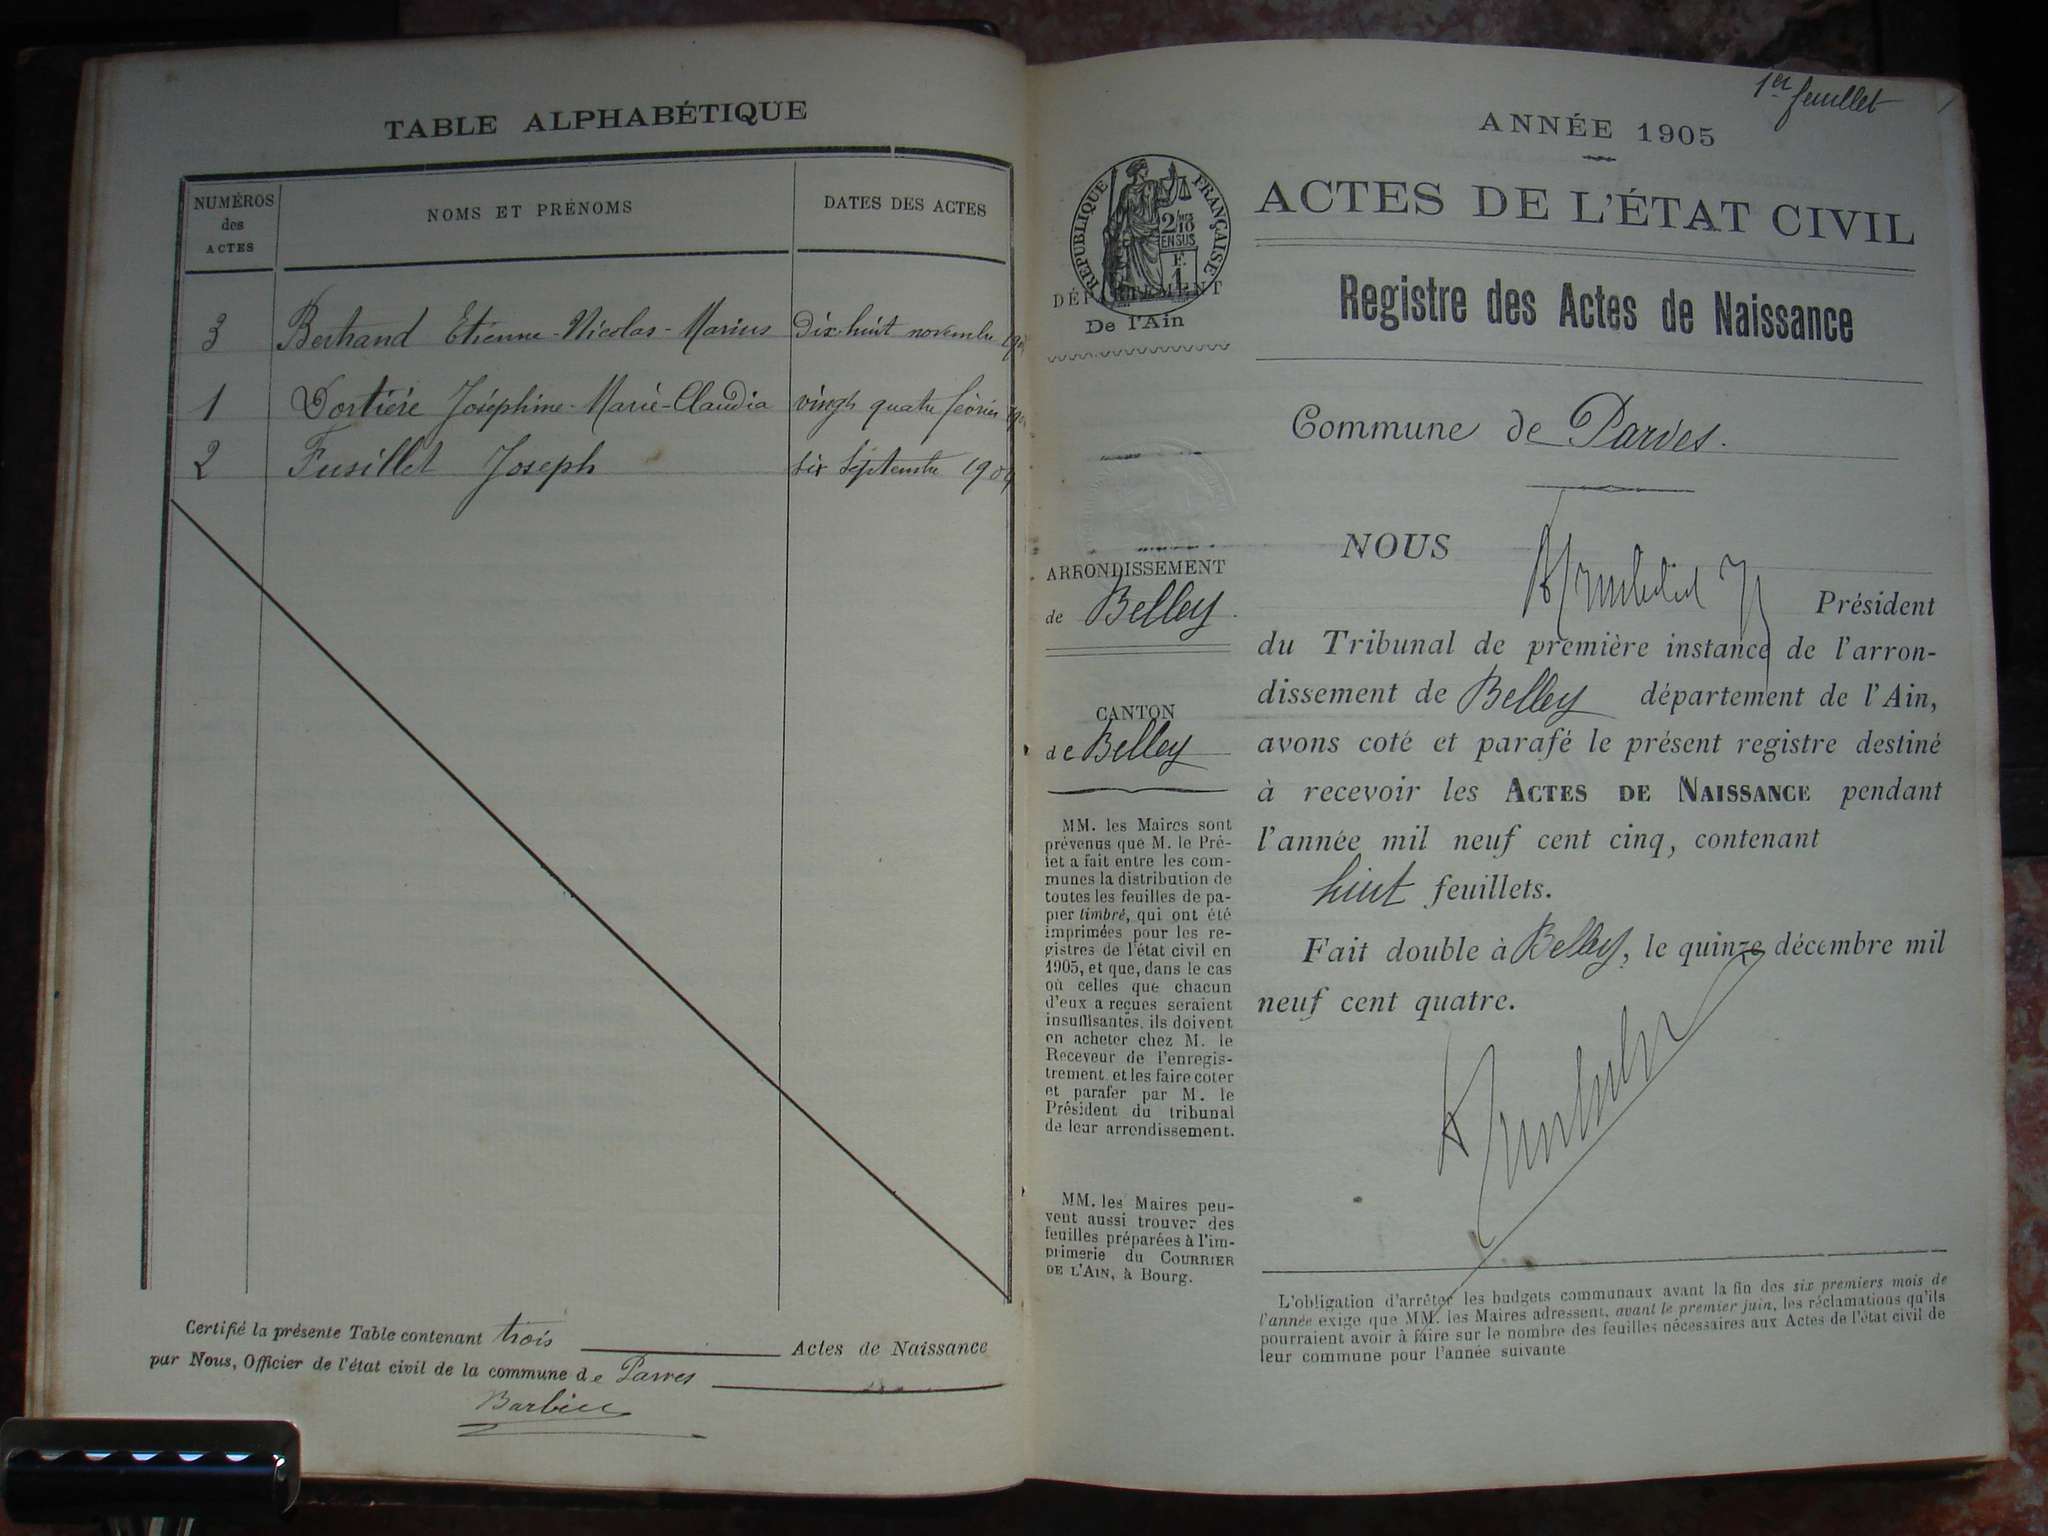 TABLE ALPHABÉTIQUE
NUMÉROS des ACTES
NOMS ET PRÉNOMS
DATES DES ACTES
3 Bertrand Etienne-Nicolas-Marius Dix-huit novembre
1 Dortière Joséphine-Marie-Claudia vingt quatre février
2 Fusillet Joseph six septembre 1904
Certifié la présente Table contenant trois Actes de Naissance
par Nous, Officier de l'état civil de la commune de Parves
Barbier
1er feuillet
ANNÉE 1905
RÉPUBLIQUE FRANÇAISE
2/10
EN SUS
F.
1
DÉPARTEMENT
De l'Ain
ARRONDISSEMENT
de Belley
CANTON
de Belley
MM. les Maires sont
prévenus que M. le Pré-
fet a fait entre les com-
munes la distribution de
toutes les feuilles de pa-
pier timbré, qui ont été
imprimées pour les re-
gistres de l'état civil en
1905, et que, dans le cas
où celles que chacun
d'eux a reçues seraient
insuffisantes, ils doivent
en acheter chez M. le
Receveur de l'enregis-
trement et les faire coter
et parafer par M. le
Président du tribunal
de leur arrondissement.
MM. les Maires peu-
vent aussi trouver des
feuilles préparées à l'im-
primerie du COURRIER
DE L'AIN, à Bourg.
ACTES DE L'ÉTAT CIVIL
Registre des Actes de Naissance
Commune de Parves.
NOUS
Président
du Tribunal de première instance de l'arron-
dissement de Belley département de l'Ain,
avons coté et parafé le présent registre destiné
à recevoir les ACTES DE NAISSANCE pendant
l'année mil neuf cent cinq, contenant
huit feuillets.
Fait double à Belley, le quinze décembre mil
neuf cent quatre.
L'obligation d'arrêter les budgets communaux avant la fin des six premiers mois de
l'année exige que MM. les Maires adressent, avant le premier juin, les réclamations qu'ils
pourraient avoir à faire sur le nombre des feuilles nécessaires aux Actes de l'état civil de
leur commune pour l'année suivante